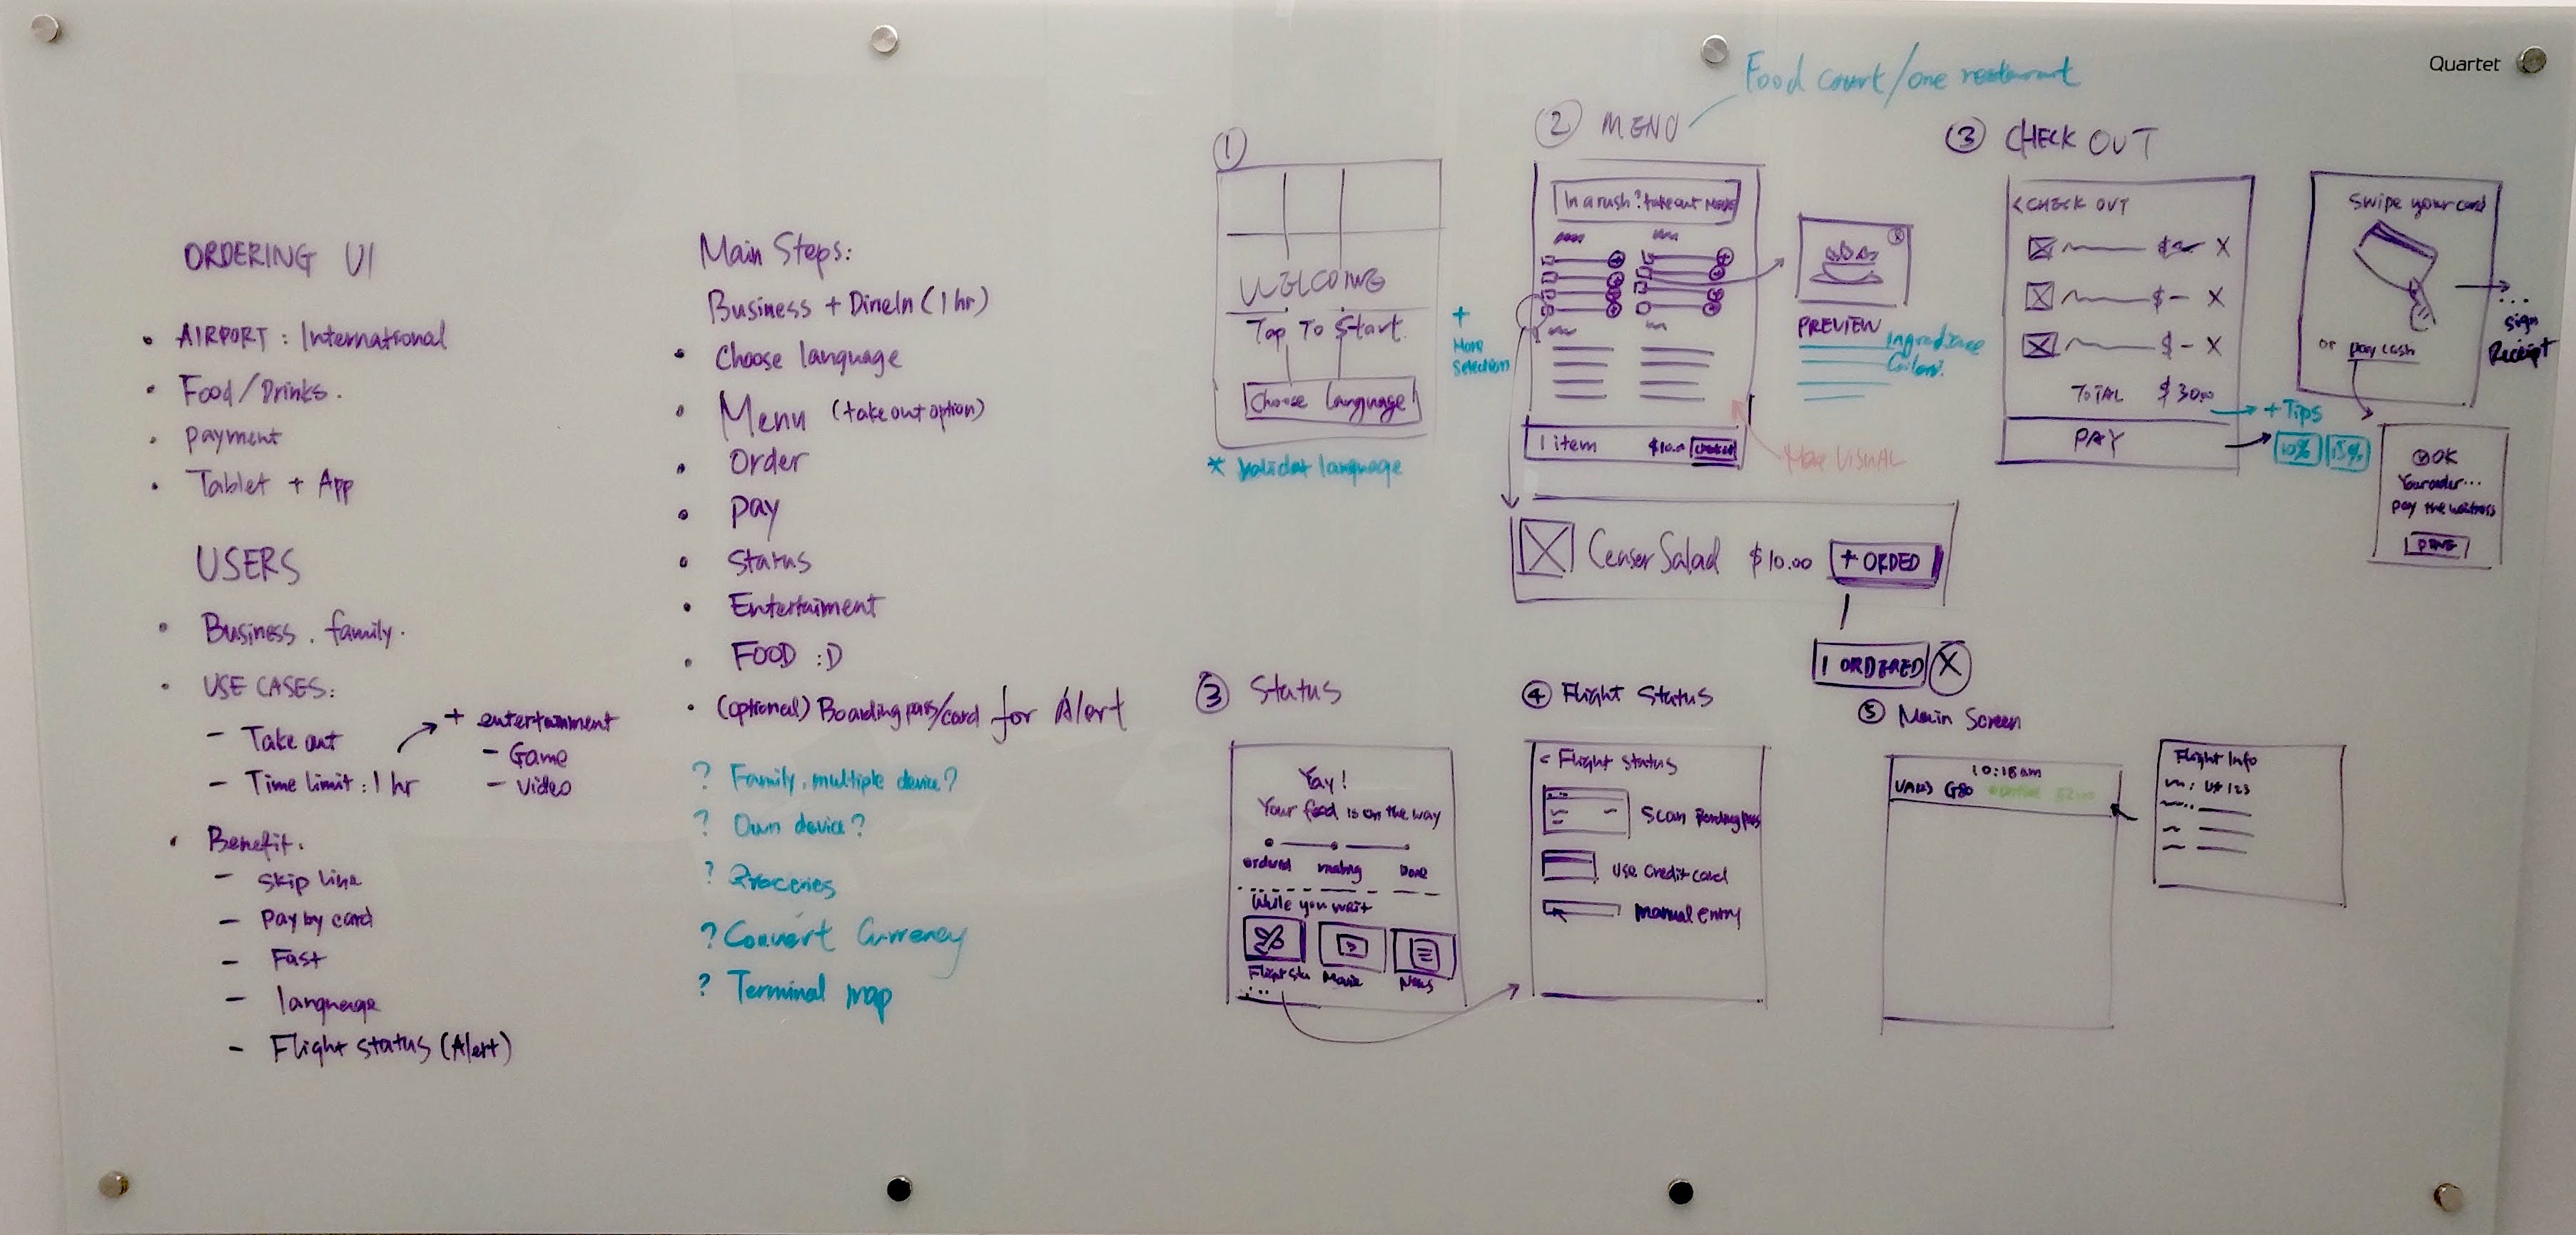 Quartet
ORDERING UI
• AIRPORT : International
• Food/Drinks.
• payment
• Tablet + App
USERS
• Business . family.
• USE CASES:
- Take out
- Time limit : 1 hr
+ entertainment
- Game
- Video
• Benefit.
- Skip line
- Pay by card
- Fast
- language
- Flight status (Alert)
Main Steps:
Business + DineIn (1 hr)
• Choose language
• Menu (take out option)
• Order
• Pay
• Status
• Entertaiment
• FOOD :D
• (optional) Boarding pass/card for Alert
? Family, multiple device?
? Own device?
? Groceries
? Convert Currency
? Terminal map
①
WELCOME
Tap To Start
Choose language
* Validat language
② MENU
Food court/one restaurant
In a rush? take out
+
More
Selection
1 item $10.0
More VISUAL
PREVIEW
Ceaser Salad $10.00 + ORDED
1 ORDERED X
③ CHECK OUT
< CHECK OUT
$ X
$ - X
$ - X
TOTAL $30.00
PAY
+ Tips
10% 15%
Swipe your card
or pay cash
...
sign
Receipt
OK
Your order...
pay the waitress
DONE
③ Status
Yay!
Your food is on the way
ordered making Done
While you wait
Flight Sta Movie News
...
④ Flight Status
< Flight status
Scan
USE Credit card
Manual Entry
⑤ Main Screen
10:18 am
G80
Flight Info